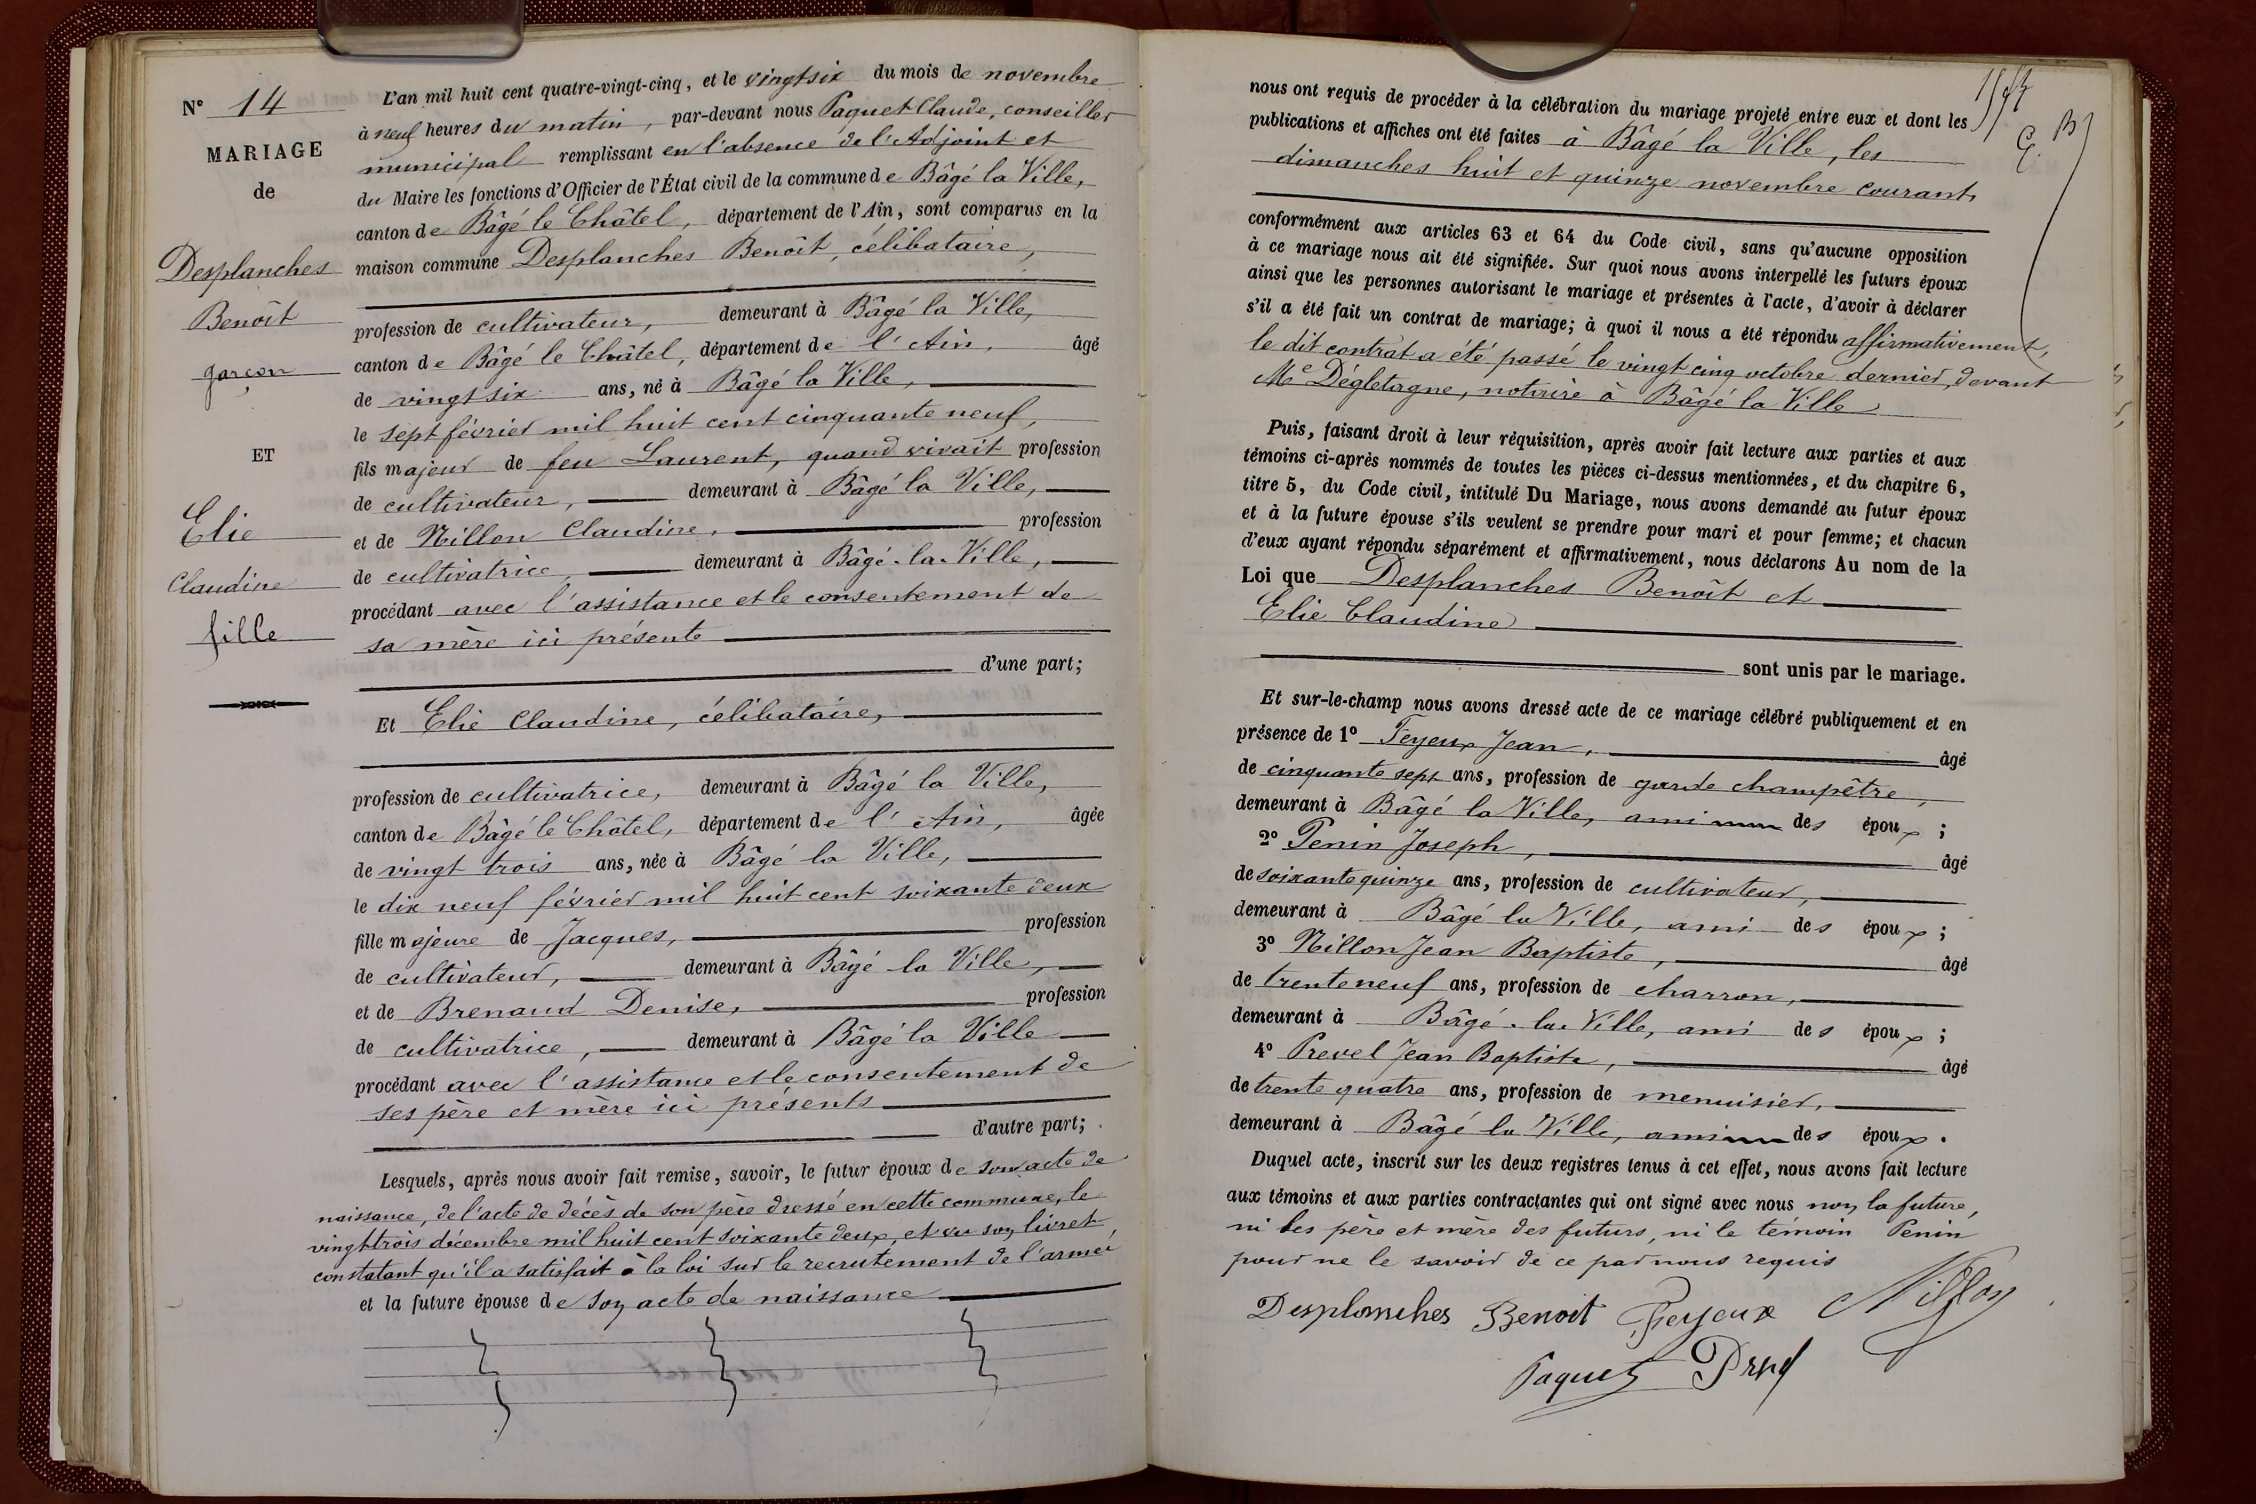 N° 14
MARIAGE
de
Desplanches
Benoît
garçon
ET
Elie
Claudine
fille
L'an mil huit cent quatre-vingt-cinq, et le vingtsix du mois de novembre
à neuf heures du matin, par-devant nous Paquet Claude, conseiller
municipal remplissant en l'absence de l'Adjoint et
du Maire les fonctions d'Officier de l'État civil de la commune de Bâgé la Ville,
canton de Bâgé le Châtel, département de l'Ain, sont comparus en la
maison commune Desplanches Benoît, célibataire,
profession de cultivateur, demeurant à Bâgé la Ville,
canton de Bâgé le Châtel, département de l'Ain, âgé
de vingt six ans, né à Bâgé la Ville,
le sept février mil huit cent cinquante neuf,
fils majeur de feu Laurent, quand vivait profession
de cultivateur, demeurant à Bâgé la Ville,
et de Nillon Claudine, profession
de cultivatrice, demeurant à Bâgé-la-Ville,
procédant avec l'assistance et le consentement de
sa mère ici présente
d'une part;
Et Elie Claudine, célibataire,
profession de cultivatrice, demeurant à Bâgé la Ville,
canton de Bâgé le Châtel, département de l'Ain, âgée
de vingt trois ans, née à Bâgé la Ville,
le dix neuf février mil huit cent soixante deux
fille majeure de Jacques, profession
de cultivateur, demeurant à Bâgé la Ville,
et de Brenaud Denise, profession
de cultivatrice, demeurant à Bâgé la Ville
procédant avec l'assistance et le consentement de
ses père et mère ici présents
d'autre part;
Lesquels, après nous avoir fait remise, savoir, le futur époux de son acte de
naissance, de l'acte de décès de son père dressé en cette commune, le
vingt trois décembre mil huit cent soixante deux, et vu son livret
constatant qu'il a satisfait à la loi sur le recrutement de l'armée
et la future épouse de son acte de naissance
nous ont requis de procéder à la célébration du mariage projeté entre eux et dont les
publications et affiches ont été faites à Bâgé la Ville, les
dimanches huit et quinze novembre courant,
conformément aux articles 63 et 64 du Code civil, sans qu'aucune opposition
à ce mariage nous ait été signifiée. Sur quoi nous avons interpellé les futurs époux
ainsi que les personnes autorisant le mariage et présentes à l'acte, d'avoir à déclarer
s'il a été fait un contrat de mariage; à quoi il nous a été répondu affirmativement,
le dit contrat a été passé le vingt cinq octobre dernier, devant
Me Dégletagne, notaire à Bâgé la Ville
Puis, faisant droit à leur réquisition, après avoir fait lecture aux parties et aux
témoins ci-après nommés de toutes les pièces ci-dessus mentionnées, et du chapitre 6,
titre 5, du Code civil, intitulé Du Mariage, nous avons demandé au futur époux
et à la future épouse s'ils veulent se prendre pour mari et pour femme; et chacun
d'eux ayant répondu séparément et affirmativement, nous déclarons Au nom de la
Loi que Desplanches Benoît et
Elie Claudine
sont unis par le mariage.
Et sur-le-champ nous avons dressé acte de ce mariage célébré publiquement et en
présence de 1° Feyeux Jean, âgé
de cinquante sept ans, profession de garde champêtre,
demeurant à Bâgé la Ville, ami des époux;
2° Penin Joseph, âgé
de soixante quinze ans, profession de cultivateur,
demeurant à Bâgé la Ville, ami des époux;
3° Nillon Jean Baptiste, âgé
de trente neuf ans, profession de charron,
demeurant à Bâgé-la-Ville, ami des époux;
4° Prevel Jean Baptiste, âgé
de trente quatre ans, profession de menuisier,
demeurant à Bâgé la Ville, ami des époux.
Duquel acte, inscrit sur les deux registres tenus à cet effet, nous avons fait lecture
aux témoins et aux parties contractantes qui ont signé avec nous non la future,
ni les père et mère des futurs, ni le témoin Penin
pour ne le savoir de ce par nous requis
Desplanches Benoit Feyeux Nillon
Paquet